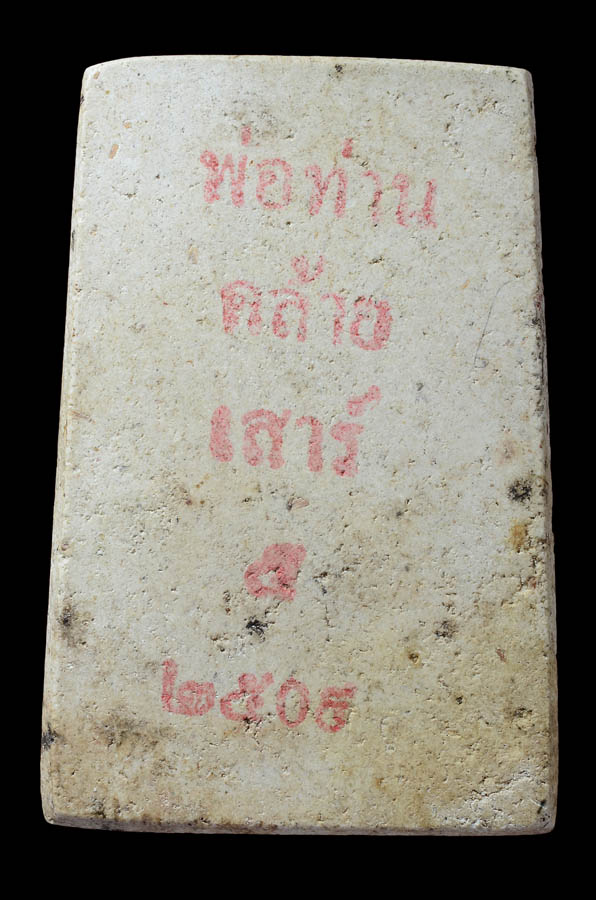 พ่อท่าน
คล้าย
เสาร์
๕
๒๕๐๕